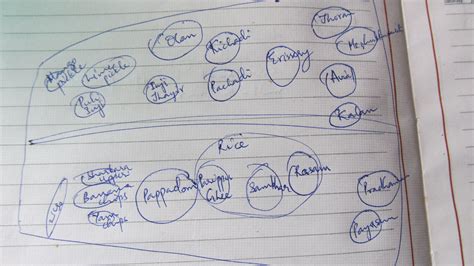 Mango
pickle
Lime
pickle
Puli
Inji
Olan
Inji
Thayir
Kichadi
Pachadi
Erissery
Thoran
Mezhukkupuratti
Avial
Kalan
Rice
Sharkara
upperi
Banana
chips
Yam
chips
Pappadom
Parippu
Ghee
Sambhar
Rasam
Pradhaman
Payasam